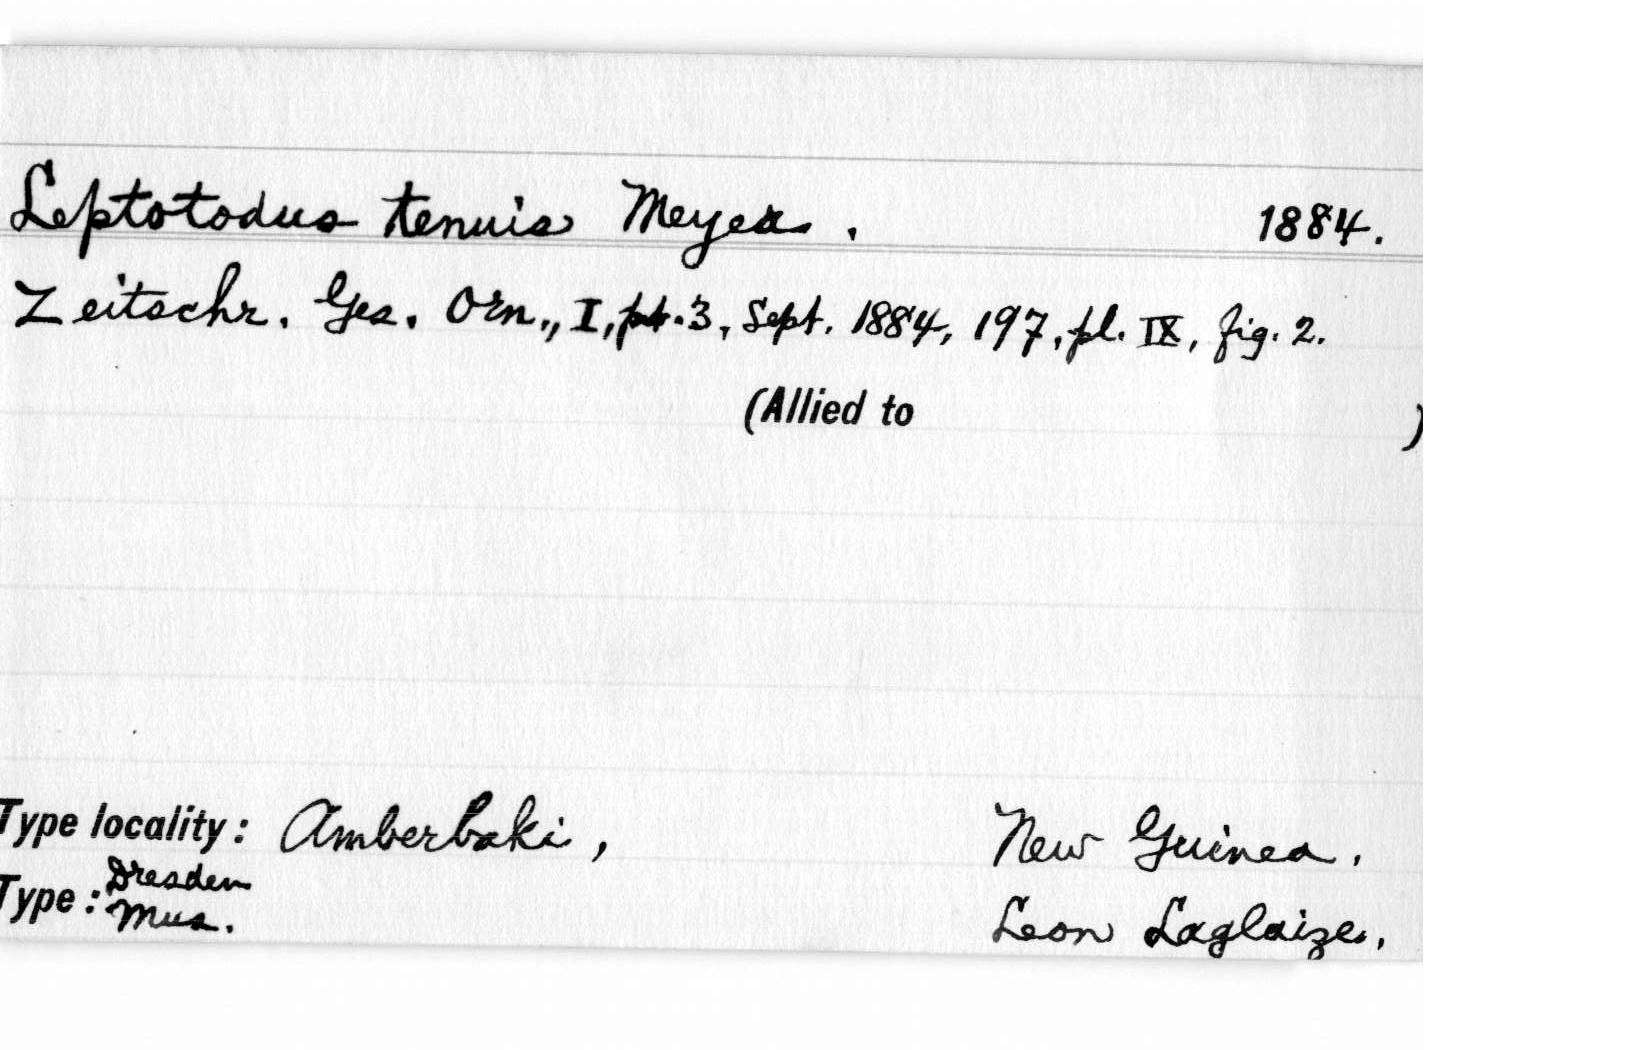 Leptotodus tenuis Meyer. 1884.
Zeitschr. Ges. Orn., I, pt. 3, Sept. 1884, 197, pl. IX, fig. 2.
(Allied to )
Type locality: Amberbaki, New Guinea.
Type: Dresden Mus. Leon Laglaize.,